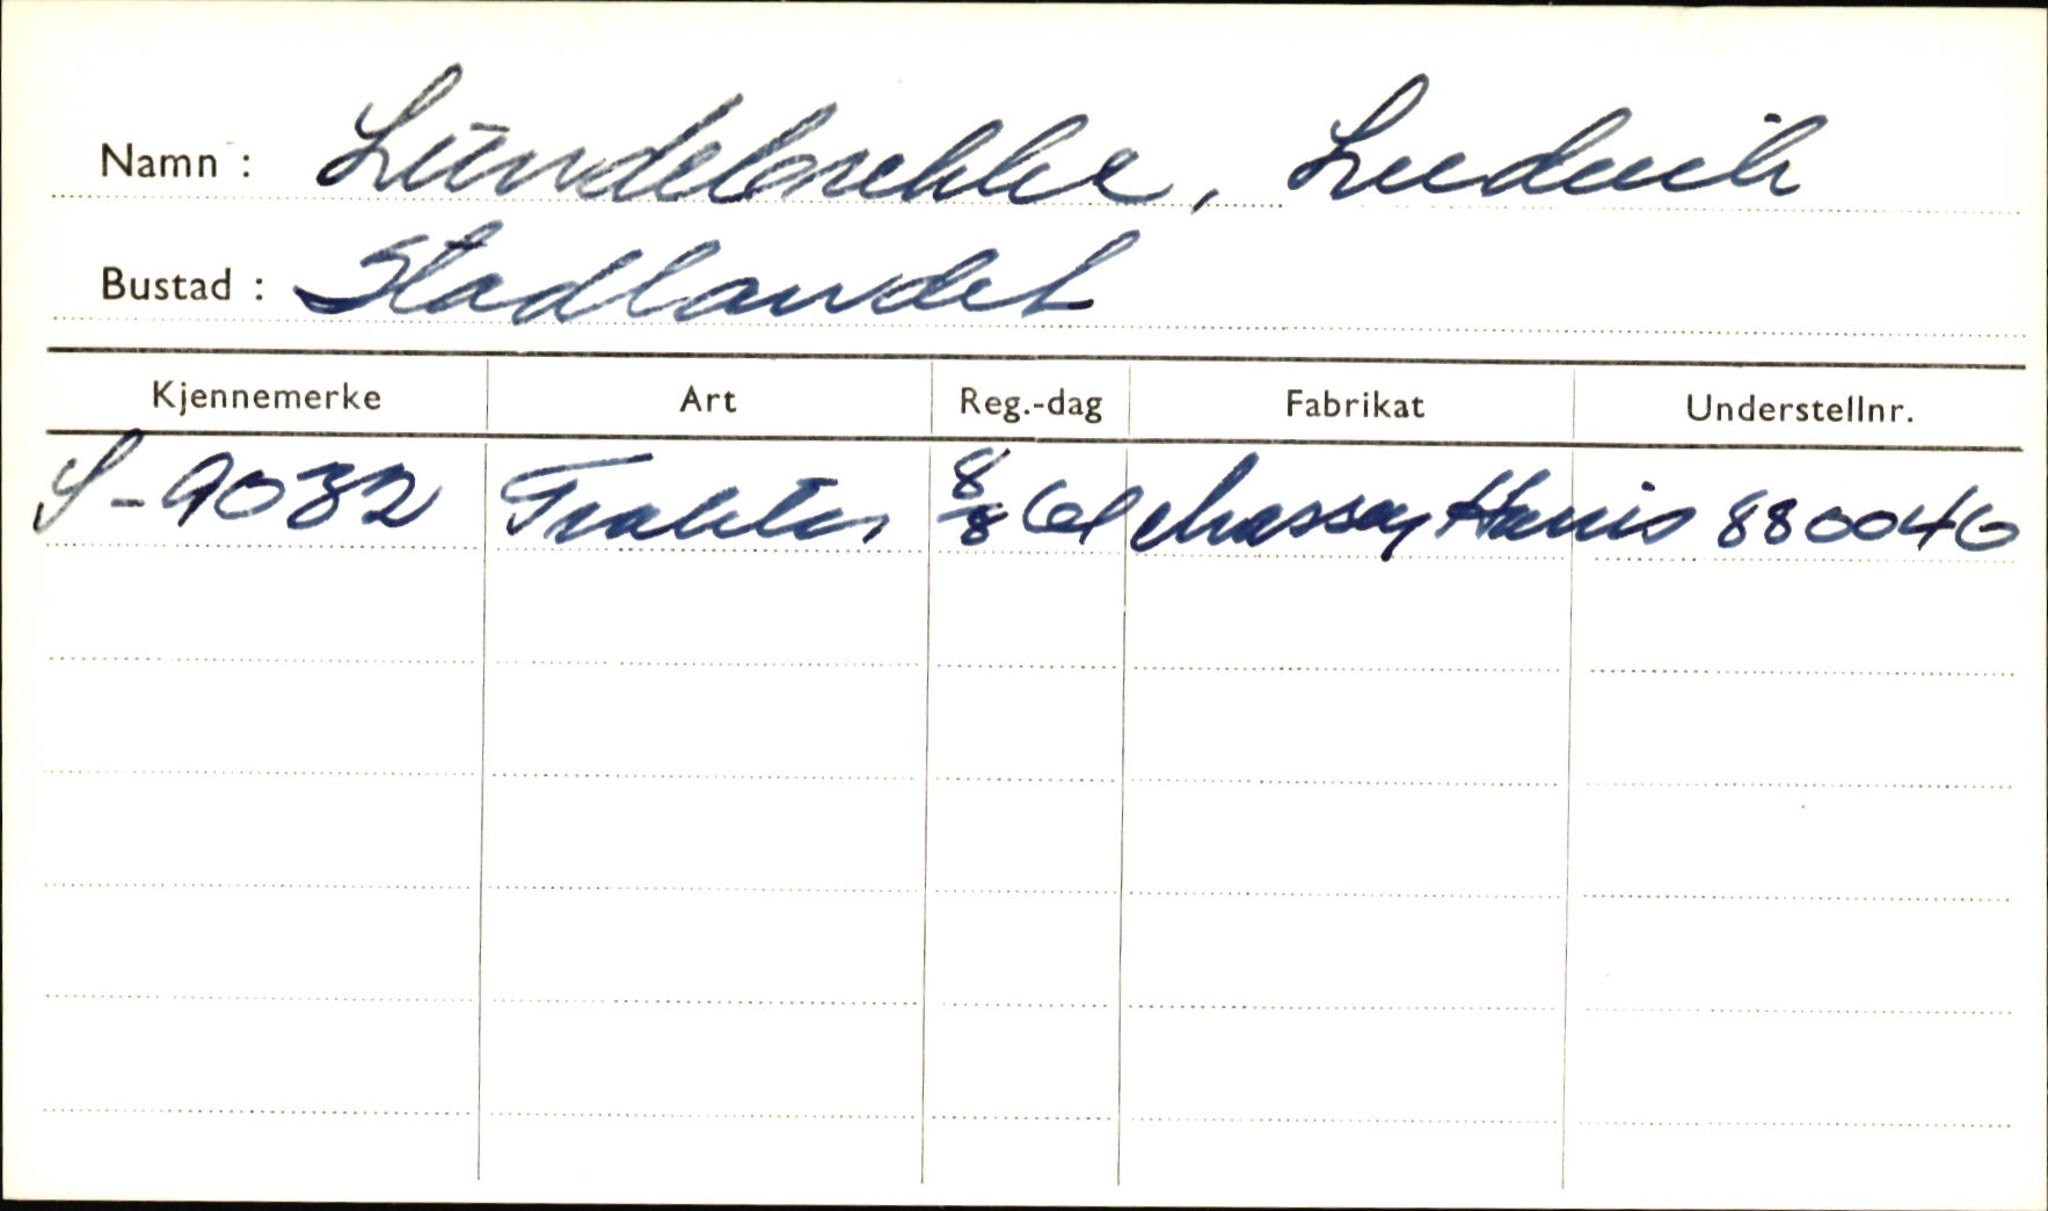 Namn : Lundebrekke, Ludvik
Bustad : Stadlandet
Kjennemerke Art Reg.-dag Fabrikat Understellnr.
S-9032 Traktor 8/8 61 Massey Harris 880046